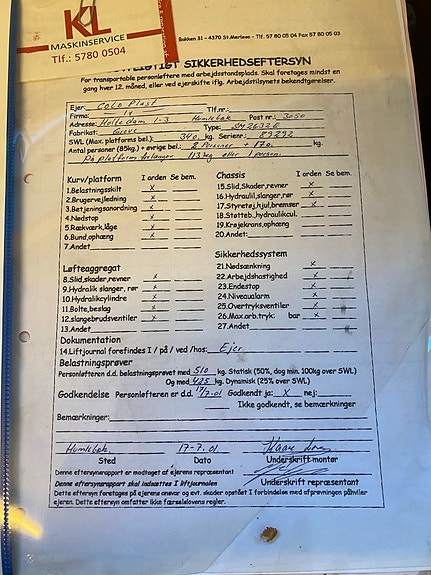 KL
MASKINSERVICE
Tlf.: 5780 0504
Bakken 31 - 4370 St.Merløse - Tlf. 57 80 05 04 Fax 57 80 05 03
SIKKERHEDSEFTERSYN
For transportable personløftere med arbejdsstandsplads. Skal foretages mindst en
gang hver 12. måned, eller ved ejerskifte iflg. Arbejdstilsynets bekendtgørelser.
Ejer: COLO Plast
Firma: Tlf.nr:
Adresse: Holtedam 1-3 Humlebæk Post nr: 3050
Fabrikat: Grove Type: SM2632E
SWL (Max. platforms bel.): 340 kg. Serienr: 83232
Antal personer (85kg.) + øvrige bel.: 2 Personer + 170 kg.
På platform forlænger 113 kg eller 1 person.
Kurv/platform I orden Se bem.
1.Belastningsskilt x
2.Brugervejledning x
3.Betjeningsanordning x
4.Nødstop x
5.Rækværk,låge x
6.Bund,ophæng x
7.Andet:
Chassis I orden Se bem.
15.Slid,Skader,revner x
16.Hydraulil,slanger,rør x
17.Styretøj,hjul,bremser x
18.Støtteb./hydraulikcul.
19.Krøjekrans,ophæng
20.Andet:
Løfteaggregat
8.Slid,skader,revner x
9.Hydralik slanger, rør x
10.Hydralikcylindre x
11.Bolte,beslag x
12.slangebrudsventiler x
13.Andet
Sikkerhedssystem
21.Nødsænkning x
22.Arbejdshastighed x
23.Endestop x
24.Niveaualarm x
25.Overtryksventiler x
26.Max.arb.tryk: bar x
27.Andet:
Dokumentation
14.Liftjournal forefindes I / på / ved /hos: Ejer
Belastningsprøver
Personløfteren d.d. belastningsprøvet med 510 kg. Statisk (50%, dog min. 100kg over SWL)
Og med 425 kg. Dynamisk (25% over SWL)
Godkendelse Personløfteren er d.d. 17/7.01 Godkendt ja: X nej:
Ikke godkendt, se bemærkninger
Bemærkninger:
Humlebæk 17-7.01
Sted Dato Underskrift montør
Denne eftersynsrapport er modtaget af ejerens repræsentant
Denne eftersynsrapport skal indsættes I liftjournalen Underskrift repræsentant
Dette eftersyn foretages på ejerens ansvar og evt. skader opstået I forbindelse med afprøvningen påhviler
ejeren. Dette eftersyn omfatter ikke færselslovens regler.